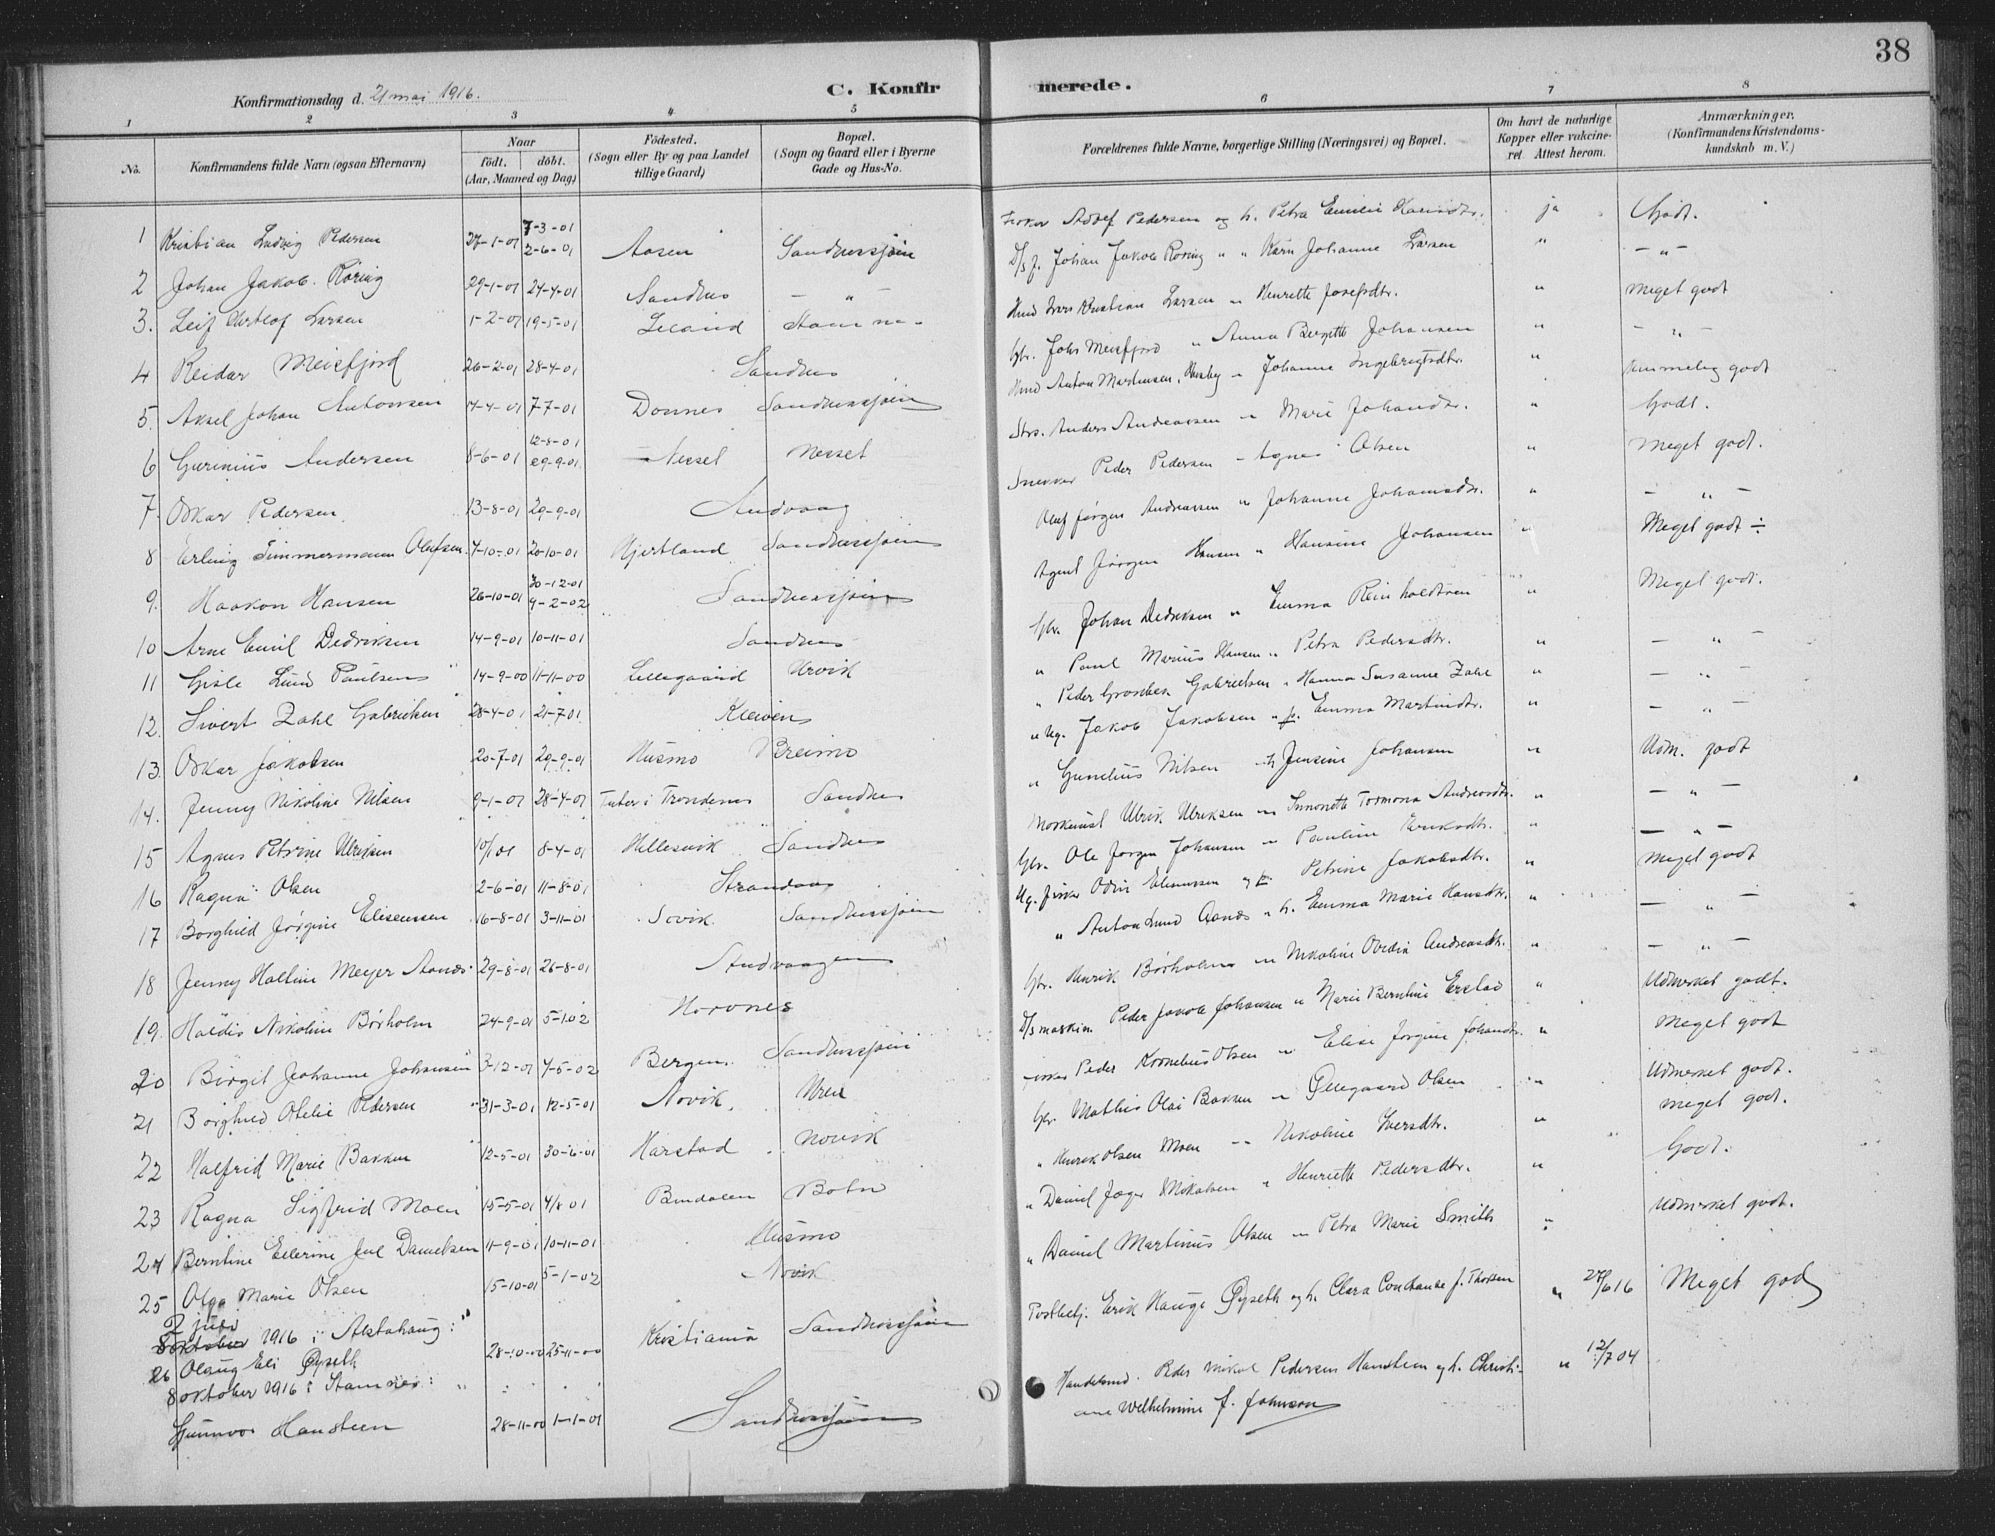 38
Konfirmationsdag d. 21 mai 1916.
C. Konfir
merede.
1 2 3 4 5 6 7 8
No. Konfirmandens fulde Navn (ogsaa Efternavn) Naar født. døbt. (Aar, Maaned og Dag) Fødested. (Sogn eller By og paa Landet tillige Gaard) Bopæl. (Sogn og Gaard eller i Byerne Gade og Hus-No.
Forældrenes fulde Navne, borgerlige Stilling (Næringsvei) og Bopæl. Om havt de naturlige Kopper eller vakcineret. Attest herom. Anmærkninger. (Konfirmandens Kristendomskundskab m. V.)
1 Kristian Ludvig Pedersen 27-1-01 7-3-01 2-6-01 Aasen Sandnessjøen Pedersen og h. Petra Emilie ja Godt.
2 Johan Jakob Røring 29-1-01 24-4-01 Sandnes — " — D/sf. Johan Jakob Røring " " Karn Johanne Larsen " — " —
3. Leif Larsen 1-2-01 19-5-01 Kristian Larsen " Henrette Josefsdtr. " Meget godt
4 Reidar Meisfjord 26-2-01 28-4-01 Sandnes Gbr. Johs Meisfjord " Anna Bergitte Johansen " — " —
5. Aksel Johan Antonsen 14-4-01 7-7-01 Dønnes Sandnessjøen Anton Martinsen, Husby " Johanne Ingebrigtsdtr. " godt
6 Andersen 8-6-01 12-8-01 29-9-01 Nesset Nesset Anders Andreassen " Marie Johansdtr. " Godt.
7. Oskar Pedersen 13-8-01 29-9-01 Sandvaag Snekker Peder Pedersen " Agnes Olsen " Meget godt.
8 Erling Simmermann Olufsen 7-10-01 20-10-01 Hjertland Sandnessjøen Oluf Jørgen Andreassen " Johanne Johansdtr. " — " —
9. Haakon Hansen 26-10-01 30-12-01 9-2-02 Sandnessjøen Agent Jørgen Hansen " Hansine Johansen " Meget godt ÷
10 Arne Emil Dedriksen 14-9-01 10-11-01 Sandnes Gbr. Johan Dedriksen " Emma Reinholdtsen " Meget godt.
11 Gisle Lund Paulsen 14-9-00 11-11-00 Lillegaard Urvik " Paul Marius Hansen " Petra Pedersdtr. " — " —
12. Sivert Zahl Gabrielsen 28-4-01 21-7-01 Kleiven " Peder Gabrielsen " Hanna Susanne Zahl " — " —
13. Oskar Jakobsen 20-7-01 29-9-01 Husmo Breimo " Ug. Jakob Jakobsen " p. Emma Martinsdtr. " — " —
14. Jenny Nikoline Nilsen 9-1-01 28-4-01 i Trondenes Sandnes " Nilsen " Jensine Johansen " Udm. godt
15 Agnes Petrine Ulriksen 10/1 01 8-4-01 Hellesvik Sandnes Ulrik Ulriksen " Andreasdtr. " — " —
16 Ragna Olsen 2-6-01 11-8-01 Strandaas Gbr. Ole Jørgen Johansen " Pauline Eriksdtr. " — " —
17 Borghild Jørgine Eliseussen 16-8-01 3-11-01 Søvik Sandnessjøen Ug. fisker Odin Eliseussen og p. Petrine Jakobsdtr. " Meget godt
18 Jenny Haltine Meyer Aanes 29-8-01 26-8-01 Sandvaagen " Anton Lund Aanes " h. Emma Marie Hansdtr. " — " —
19. Haldis Nikoline Børholm 24-9-01 5-1 02 Horvnes Gbr. Henrik Børholm " Nikoline Ovedia Andreasdtr. " — " —
20 Børgit Johanne Johansen 3-12-01 4-5-02 Bergen. Sandnessjøen D/s maskin. Peder Jakob Johansen " Marie Berntine Erstad " Udmerket godt.
21 Borghild Otelie Pedersen 31-3-01 12-5-01 Novik. Uren Fisker Peder Kornelius Olsen " Elise Jørgine Johansdtr. " Meget godt
22 Halfrid Marie Bakken 12-5-01 30-6-01 Harstad Novik Gbr. Mathis Olai Bakken " Øllegaard Olsen " Udmerket godt.
23 Ragna Sigfrid Moen 15-5-01 4/8 01 Bindalen Botn " Henrik Olsen Moen " Nikoline Iversdtr. " Meget godt.
24 Berntine Ellerine Jul Danielsen 11-9-01 10-11-01 Husmo " Daniel Jæger Mikalsen " Henriette Pedersdtr. " Godt.
25 Olga Marie Olsen 15-10-01 5-1-02 Novik " Daniel Martinus Olsen " Petra Marie Smith " Udmerket godt.
2 juli
8 oktober 1916 i Alstahaug:
26 Olaug Eli Øyseth 28-10-00 25-11-00 Kristiania Sandnessjøen Postbetj. Erik Hauge Øyseth og h. Clara Constance f. Thorsen " 27/6 16 Meget godt
8 oktober 1916 i Stamnes:
Gunnvor Hansteen 28-11-00 1-1-01 Sandnessjøen Handelsmd. Peder Mikal Pedersen Hansteen og h. Christiane Wilhelmine f. Johnson " 12/7 04